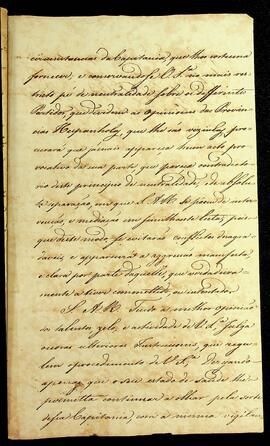 circunstancias da Capitania, que lhes costuma
fornecer, e conservando-se V. S.ª no mais res-
tricto pé de neutralidade sobre os differentes
Partidos, que dividem as opinioens das Provin-
cias Hespanholas, que lhe são vizinhas, pro-
curará que jamais appareça hum acto pro-
vocativo de sua parte, que pareça contradicto-
rio deste principio de neutralidade, e de absolu-
ta separação, em que S. A. R. se
e mediação em semilhantes lutas, pois
que deste modo se evitarão conflictos desagra-
daveis, e apparecerá a aggressão manifesta,
e clara por parte daquelle, que verdadeira-
mente a tiver committido, ou intentado.
S. A. R. Tendo a melhor opinião
dos talentos, zelo, e actividade de V. S.ª julga
ulteriores Instrucçoens, que regu-
lem o procedimento de V. S.ª Dezejando
apenas, que o seu estado de saude lhe
permitta continuar a olhar pela sorte
dessa Capitania, com a mesma vigilan-